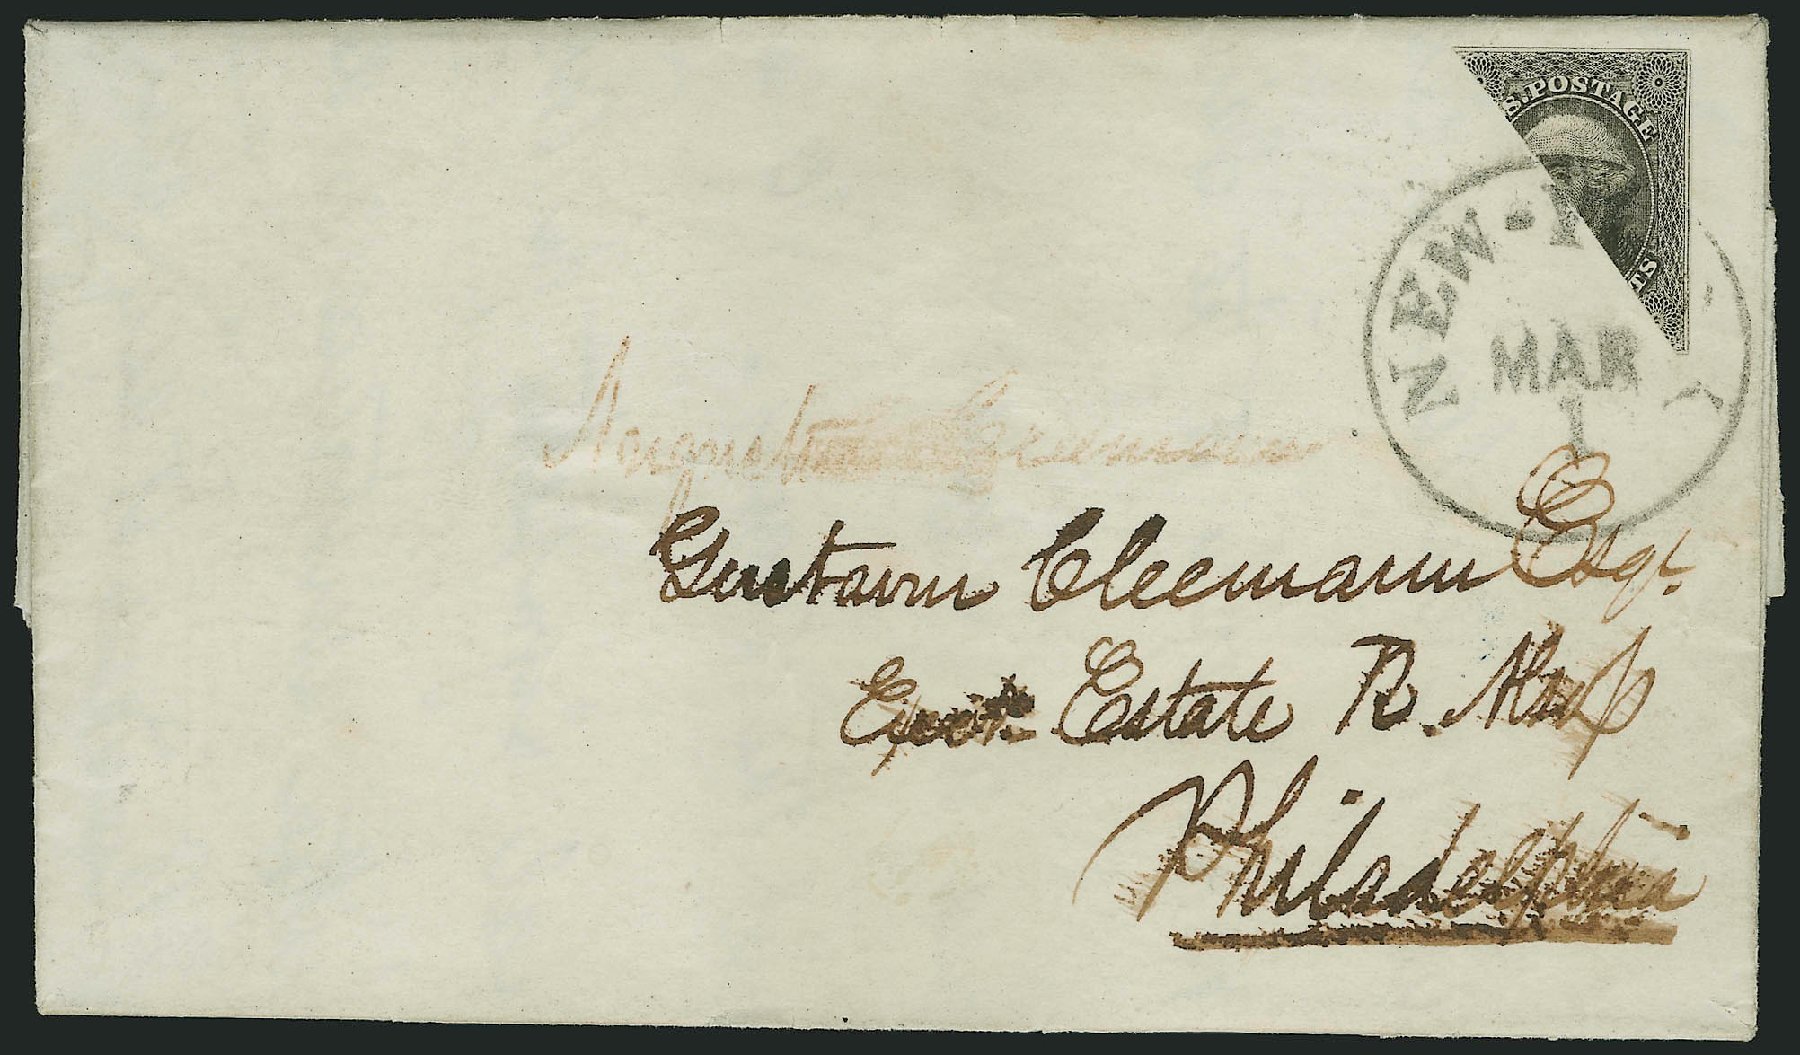 S. POSTAGE
TS
NEW-Y
MAR
1
Gustavus Cleemann Esqr.
Exor. Estate R. Alsop
Philadelphia